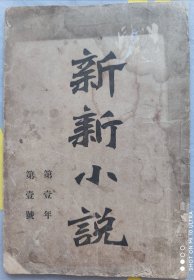 新新小說
第壹年
第壹號